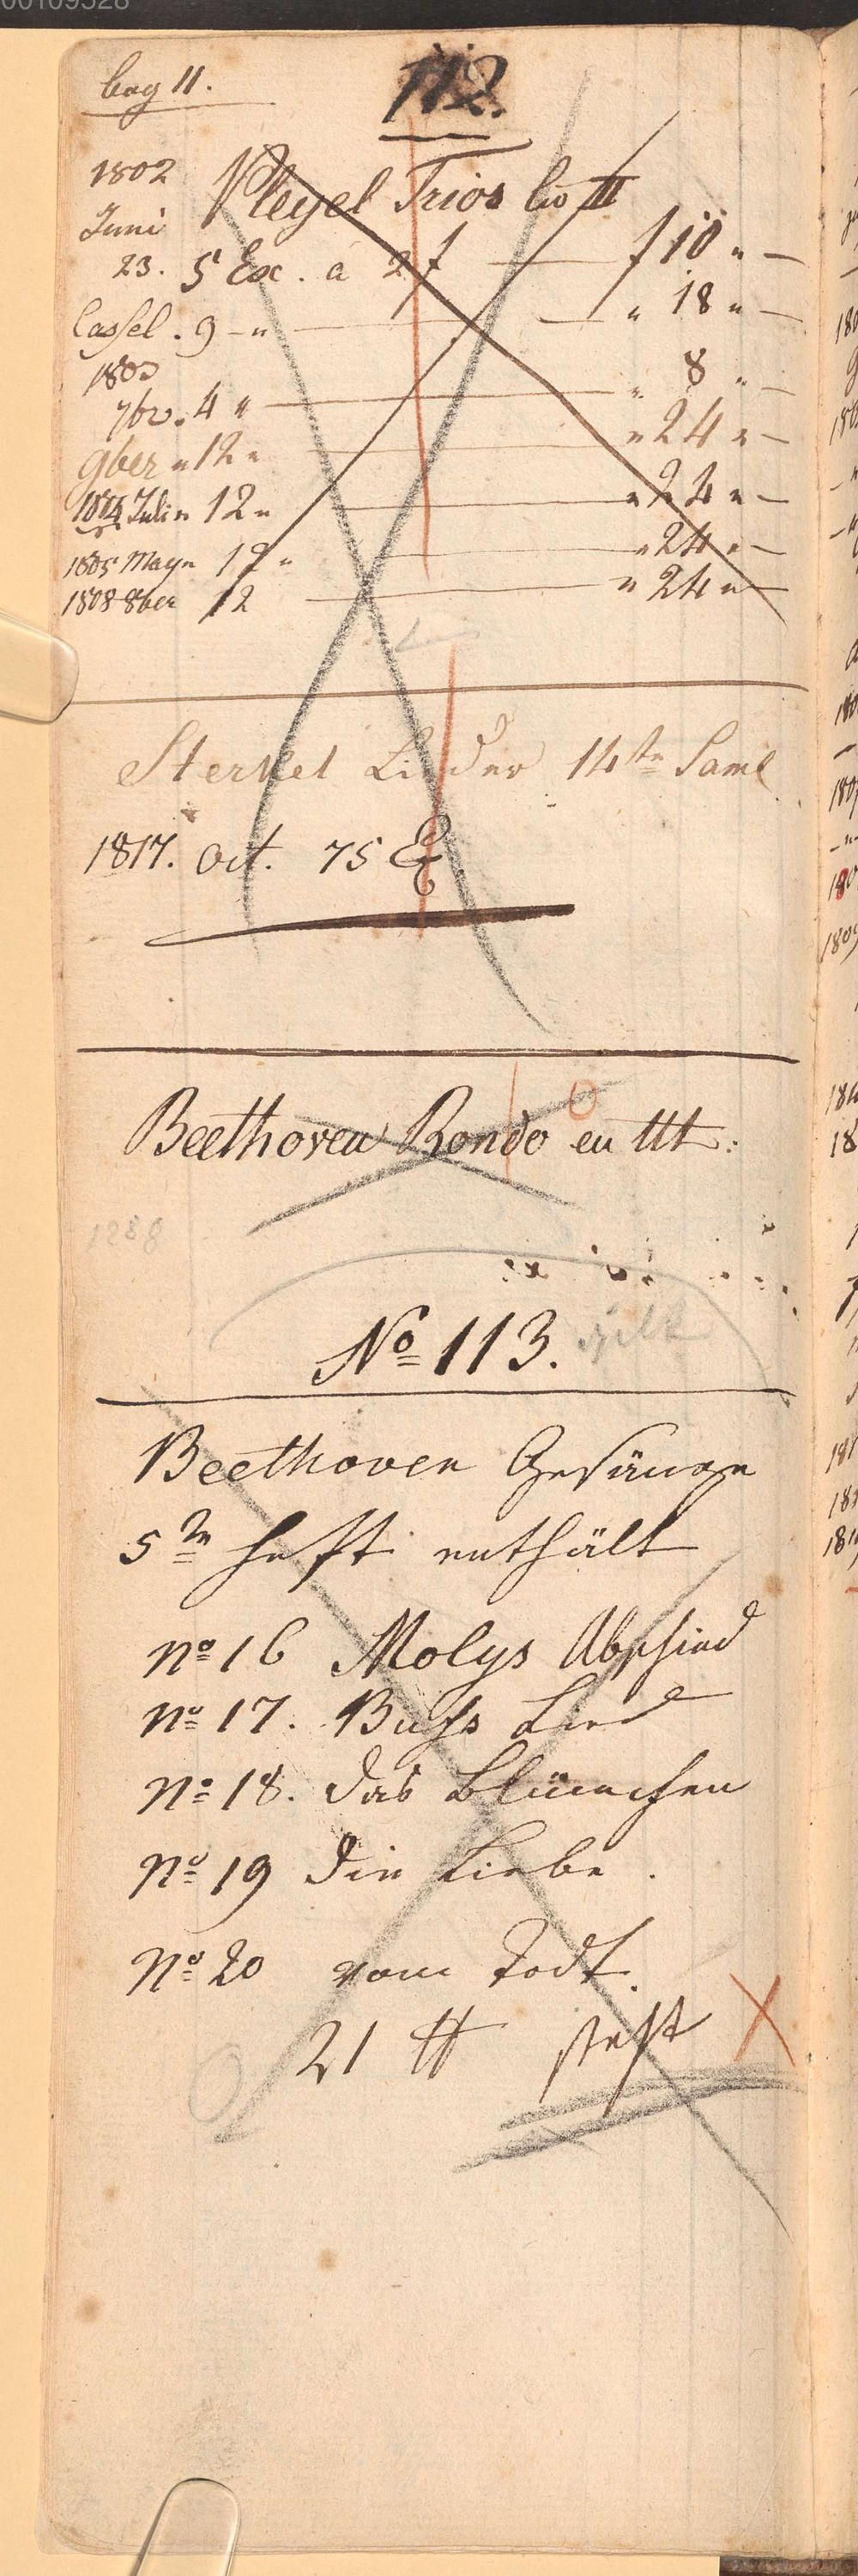 00109528
bog 11.
112.
1802 Pleyel Trios liv II
Juni
23. 5 Ex. a 2 f — f 10 " —
Cassel . 9 - " — " 18 " —
1803
7br. 4 " — " 8 " —
9ber " 12 " — " 24 " —
1804 Juli " 12 " — " 24 " —
1805 May " 12 " — " 24 " —
1808 8ber 12 — " 24 " —
Sterkel Lieder 14te Saml
1817. Oct. 75 Ex
Beethoven Rondo en Ut:
1288
No 113.
Beethoven Gesänge
5te Heft enthält
No 16 Molys Abschied
No 17. Buss Lied
No 18. Das Blümchen
No 19 Die Liebe.
No 20 vom Todt.
21 # steht